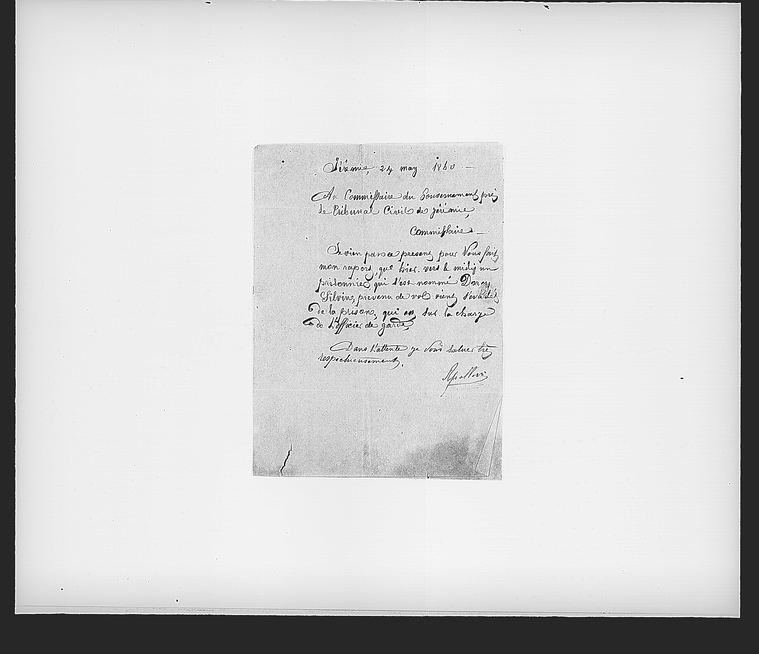 Jérémie, 24 may 1860 —
Au Commissaire du Gouvernement près
le Tribunal Civil de Jérémie,
Commissaire —
Je vien par ce present pour Vous fair
mon raport, que hier vers le midy un
prisonnier qui s'est nommé
Silvin, prevenu de vol vient s'évadé
de la prison, qui es sur la charge
de L'officier de garde,
Dans l'attente je Vous salue trè
respectueusement,